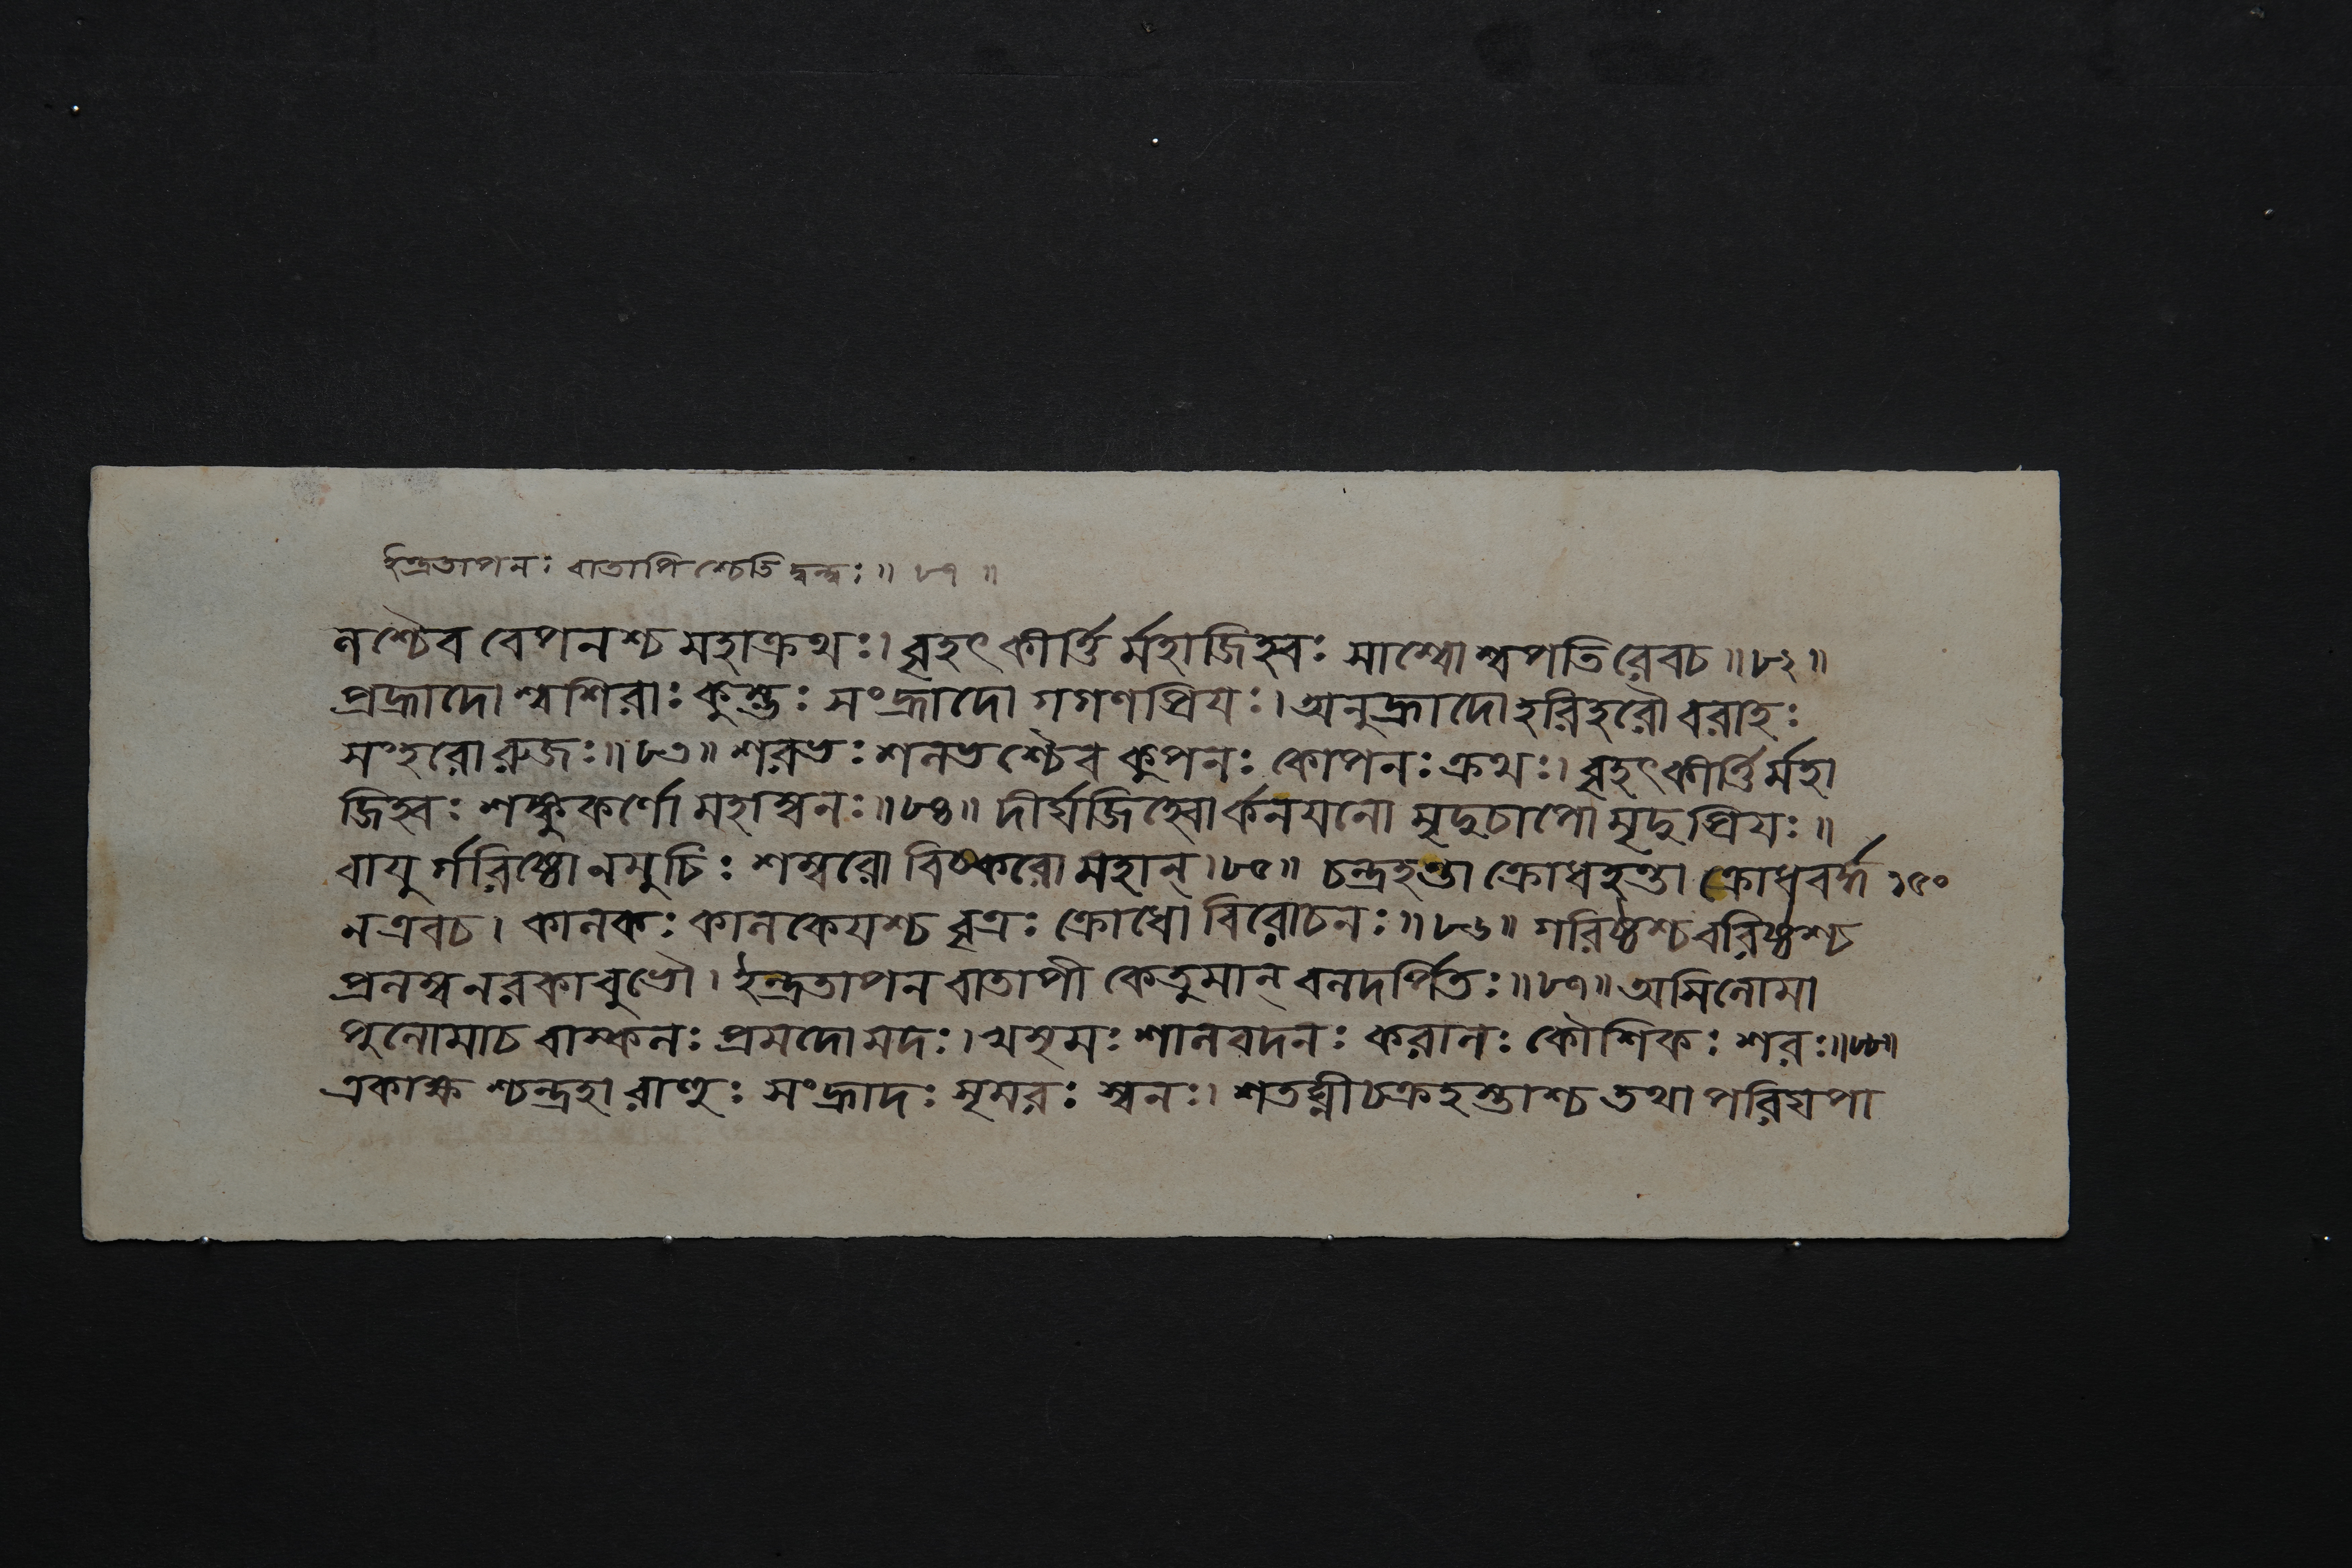 ইন্দ্রতাপনঃ বাতাপিশ্চেতি দ্বন্দ্বঃ॥ ৮৭ ॥
নশ্চৈব বেপনশ্চ মহাক্রথঃ। বৃহৎকীর্ত্তি র্মহাজিহ্বঃ সাশ্বোশ্বপতিরেবচ॥৮২॥
প্রহ্রাদোশ্বশিরাঃ কুম্ভঃ সংহ্রাদো গগণপ্রিযঃ। অনুহ্রাদো হরিহরৌ বরাহঃ
সংহরোরুজঃ॥৮৩॥ শরভঃ শনভশ্চৈব কুপনঃ কোপনঃ ক্রথঃ। বৃহৎকীর্ত্তির্মহা
জিহ্বঃ শঙ্কুকর্ণো মহাস্বনঃ॥৮৪॥ দীর্ঘজিহ্বোর্কনযনো মৃদুচাপো মৃদুপ্রিযঃ॥
বাযুর্গরিষ্ঠোনমুচিঃ শম্বরো বিষ্করো মহান্।৮৫॥ চন্দ্রহন্তা ক্রোধহন্তা ক্রোধবর্দ্ধ ১৫০
নএবচ। কানকঃ কানকেযশ্চ বৃত্রঃ ক্রোধো বিরোচনঃ॥৮৬॥ গরিষ্ঠশ্চবরিষ্ঠশ্চ
প্রনম্বনরকাবুভৌ। ইন্দ্রতাপনবাতাপী কেতুমান্ বনদর্পিতঃ॥৮৭॥ অসিনোমা
পুনোমাচ বাস্কনঃ প্রমদোমদঃ। খসৃমঃ শানবদনঃ করানঃ কৌশিকঃ শরঃ॥৮৮॥
একাক্ষশ্চন্দ্রহা রাণুঃ সংহ্রাদঃ সৃমরঃ স্বনঃ। শতঘ্নীচক্রহস্তাশ্চ তথা পরিঘপা